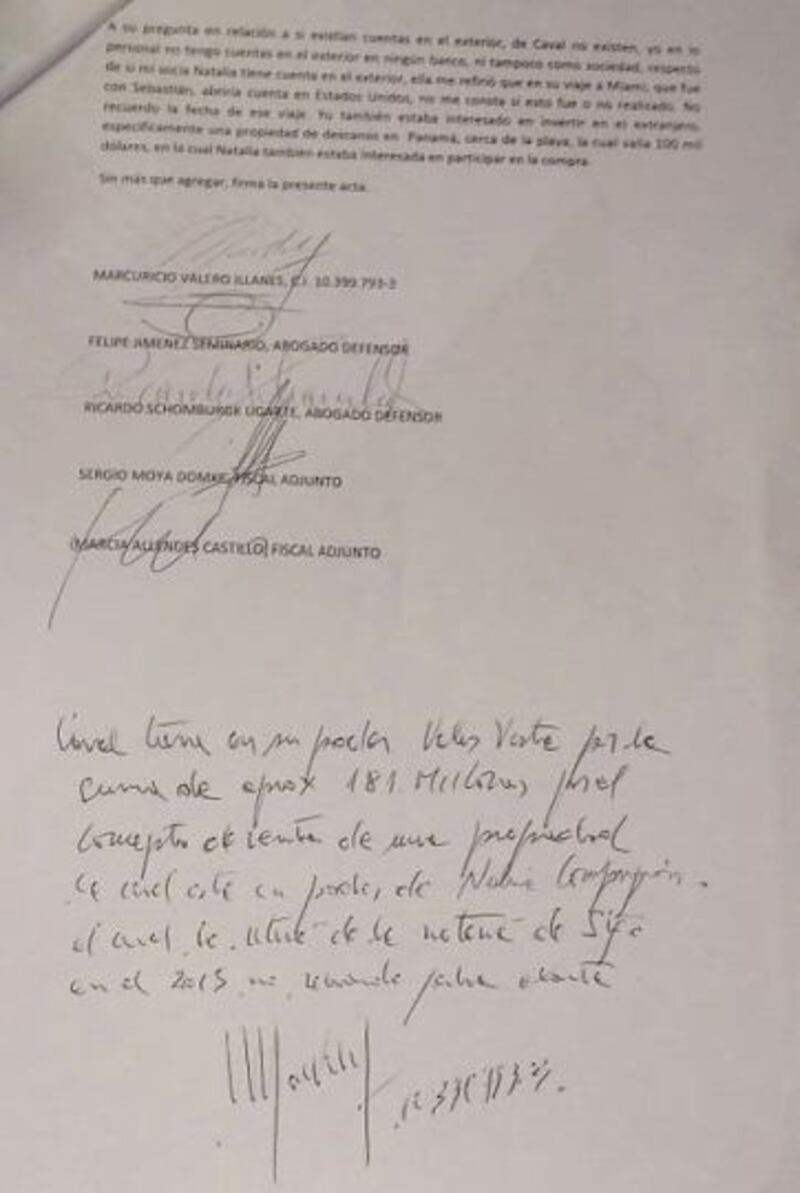 A su pregunta en relación a si existían cuentas en el exterior, de Caval no existen, yo en lo
personal no tengo cuentas en el exterior en ningún banco, ni tampoco como sociedad, respecto
de si mi socia Natalia tiene cuenta en el exterior, ella me refirió que en su viaje a Miami, que fue
con Sebastián, abriría cuenta en Estados Unidos, no me consta si esto fue o no realizado. No
recuerdo la fecha de ese viaje. Yo también estaba interesado en invertir en el extranjero,
específicamente una propiedad de descanso en Panamá, cerca de la playa, la cual valía 100 mil
dólares, en lo cual Natalia también estaba interesada en participar en la compra.
Sin más que agregar, firma la presente acta.
MARCURICIO VALERO ILLANES, C.I. 10.399.793-3
FELIPE JIMENEZ SEMINARIO, ABOGADO DEFENSOR
RICARDO SCHOMBURGK UGARTE, ABOGADO DEFENSOR
SERGIO MOYA DOMKE, FISCAL ADJUNTO
MARCIA ALLENDES CASTILLO FISCAL ADJUNTO
Caval tiene en su poder Vales Vista por la
suma de aprox 181 Millones por el
concepto de venta de una propiedad
la cual está en poder de Natalia Compagnon.
el cual lo retiré de la notaría de
en el 2015 no recuerdo fecha exacta